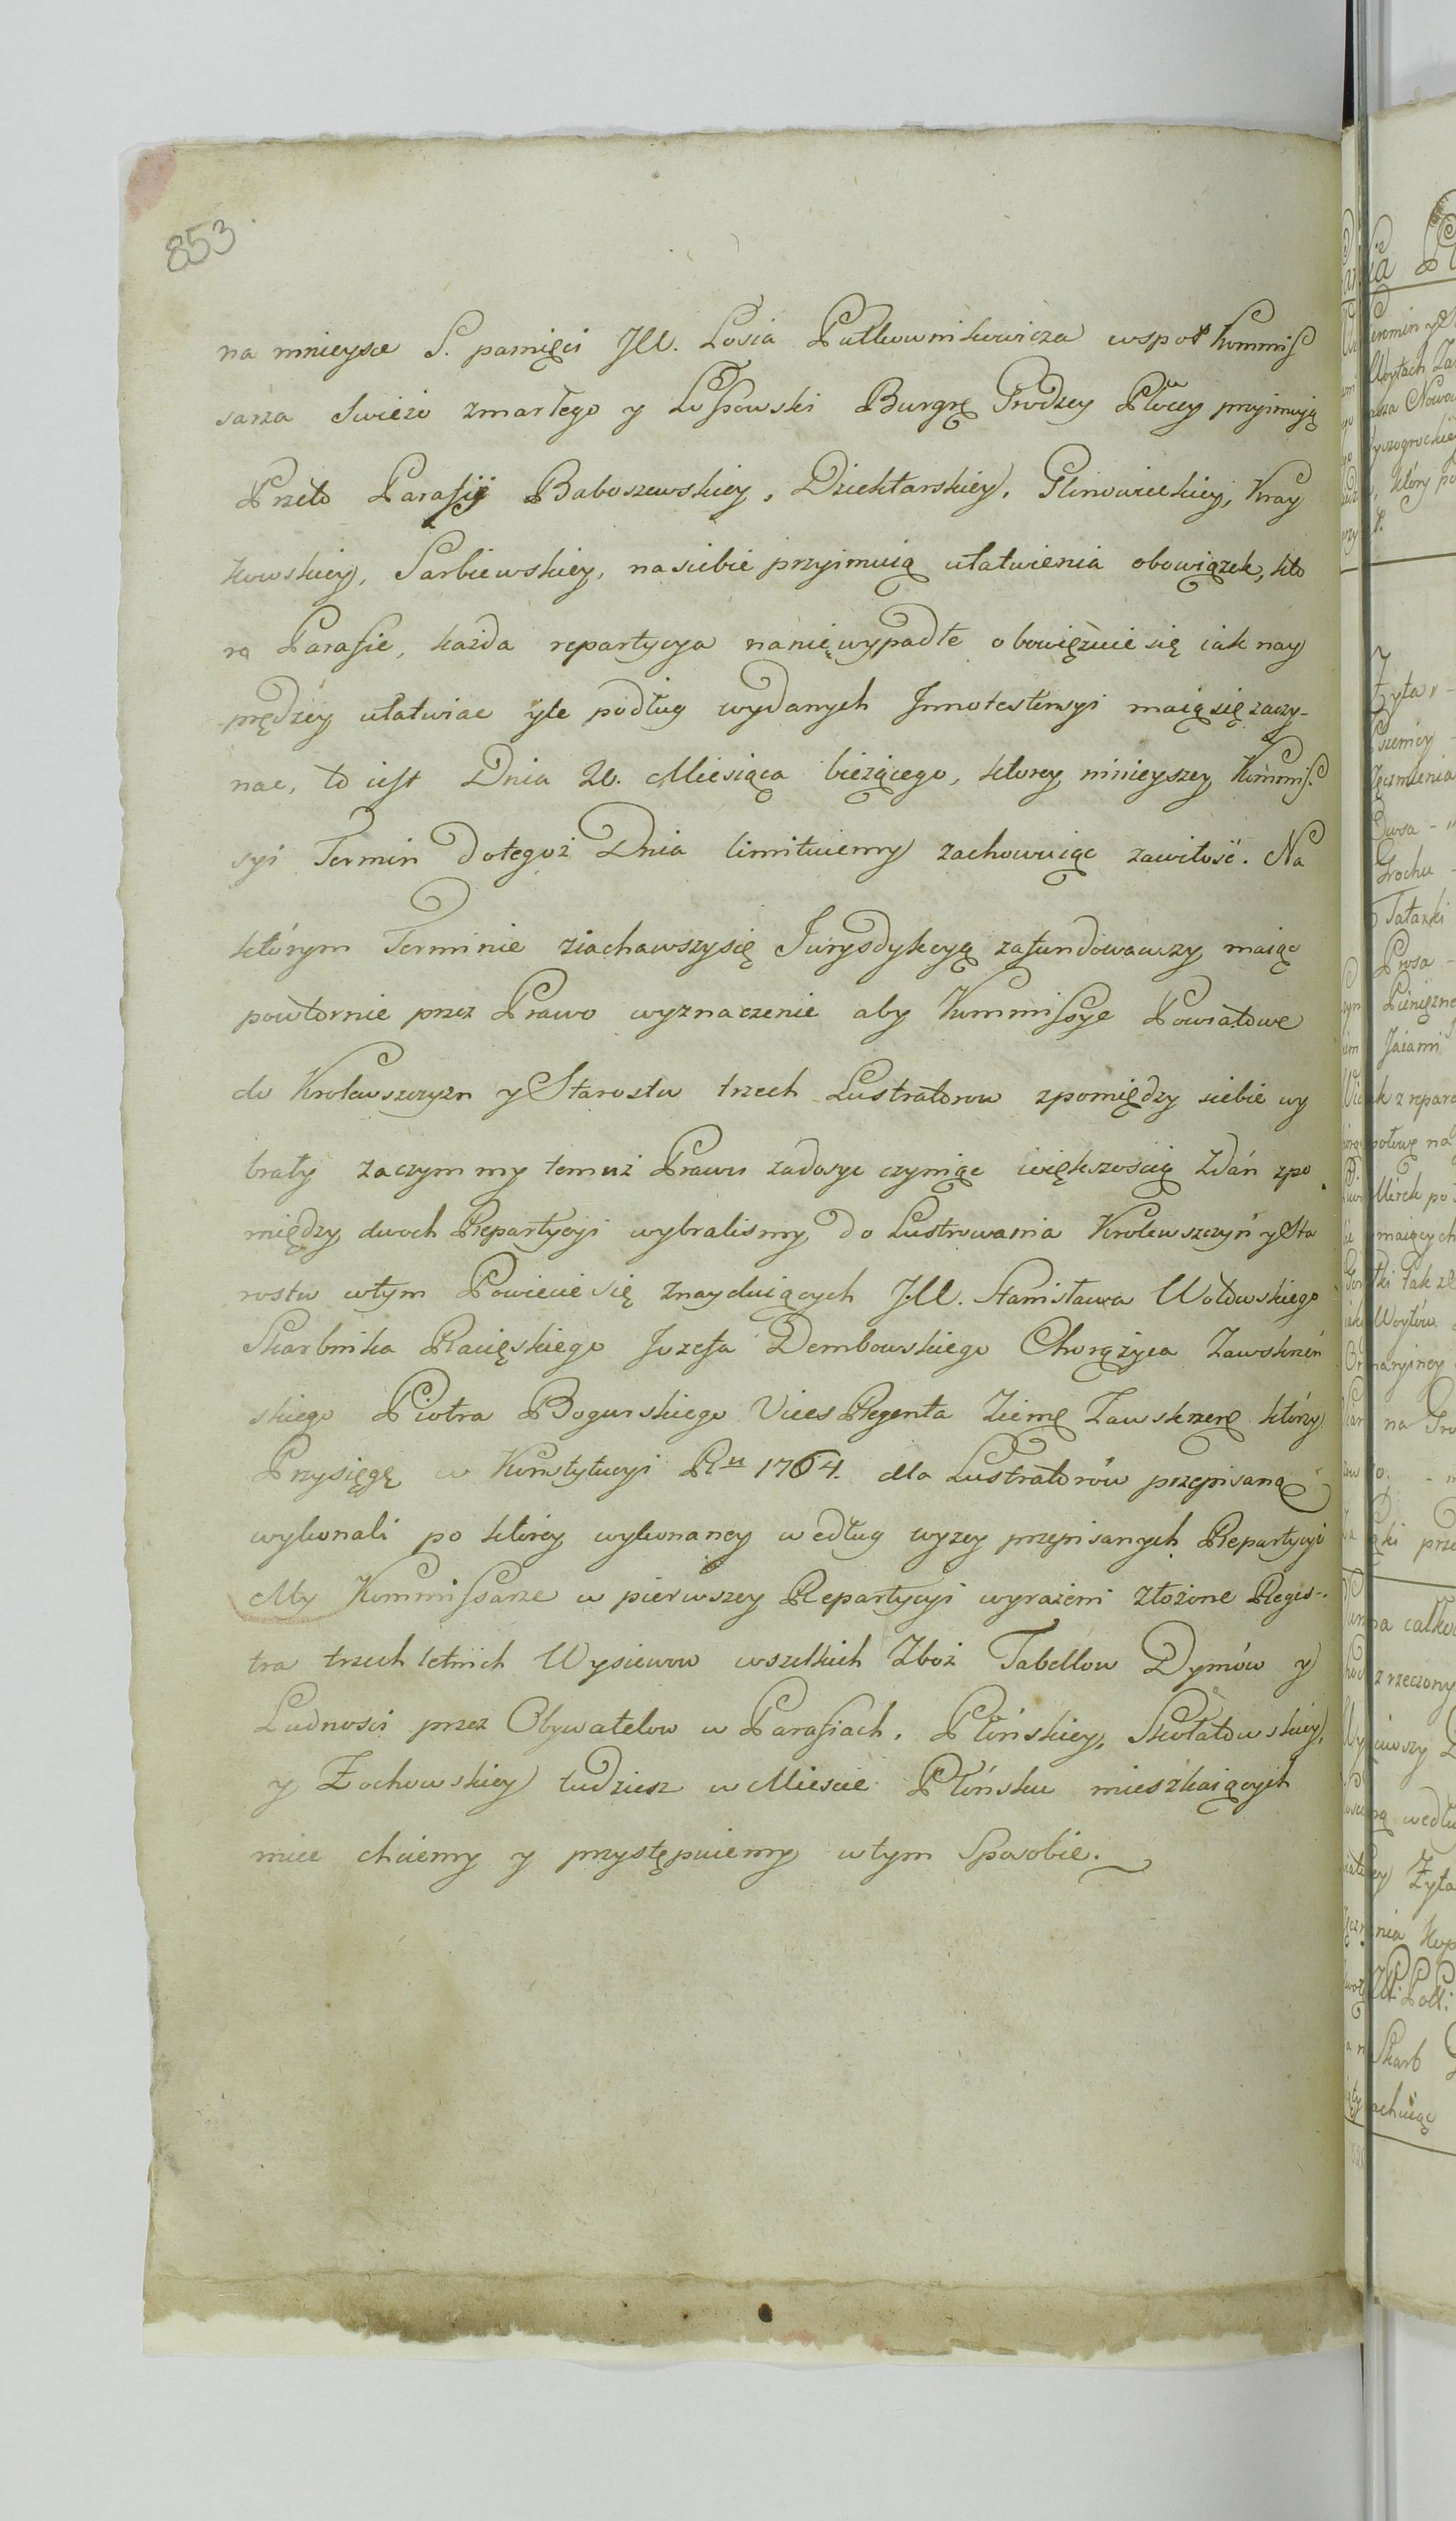 853
na mnieysce S. pamięci JW. Łosia Pułkownikowicza wspoł Kommis
sarza swieżo zmarłego y Burgrę Grodzcy Płoccy przyimuią
Przeto Parafiÿ Baboszewskiey, Dziektarskiey, Glinowieckiey, Kray
kowskiey, Sarbiewskiey, na siebie przyimuią ułatwienia obowiązek, kto
re Parafie, każda repartycya na nię wypadłe obowięzuie się iak nay
prędzey ułatwiac yle podług wydanych Innotestensyi maią się zaczy-
nac, to iest Dnia 20. Miesiąca bieżącego, ktorey ninieyszey Kommis.
syi Termin do tegoż Dnia limituiemy zachowuiąc zawitość. Na
którym Terminie ziachawszy się Jurysdykcyą zafundowawszy maiąc
powtornie przez Prawo wyznaczenie aby Kommissye Powiatowe
do Krolewszczyzn y Starostw trzech Lustratorow zpomiędzy siebie wy
brały zaczym my temuż Prawu zadosyc czyniąc większością Zdań zpo
między dwoch Repartycyi wybralismy do Lustrowania Krolewszczyń y Sta
rostw w tym Powiecie się znayduiących JW. Stanisława Wołowskiego
Skarbnika Racięskiego Jozefa Dembowskiego Chorążyca Zawskrzeń
skiego Piotra Bogurskiego Vices Regenta Ziemę Zawskrzenę którzy
Przysięgę w Konstytucyi Ru 1764. dla Lustratorów przepisaną
wykonali po któréy wykonaney według wyzey przepisanych Repartycyi
My Kommissarze w pierwszey Repartycyi wyrażeni złożone Reges-
tra trzech letnich Wysiewow wszelkich Zboż Tabellow Dymów y
Ludnosci przez Obywatelow w Parafiach. Płońskiey, Skołatowskiey,
y Żochowskiey tudziesz w Miescie Płońsku mieszkaiących
miec chcemy y przystępuiemy w tym Sposobie.